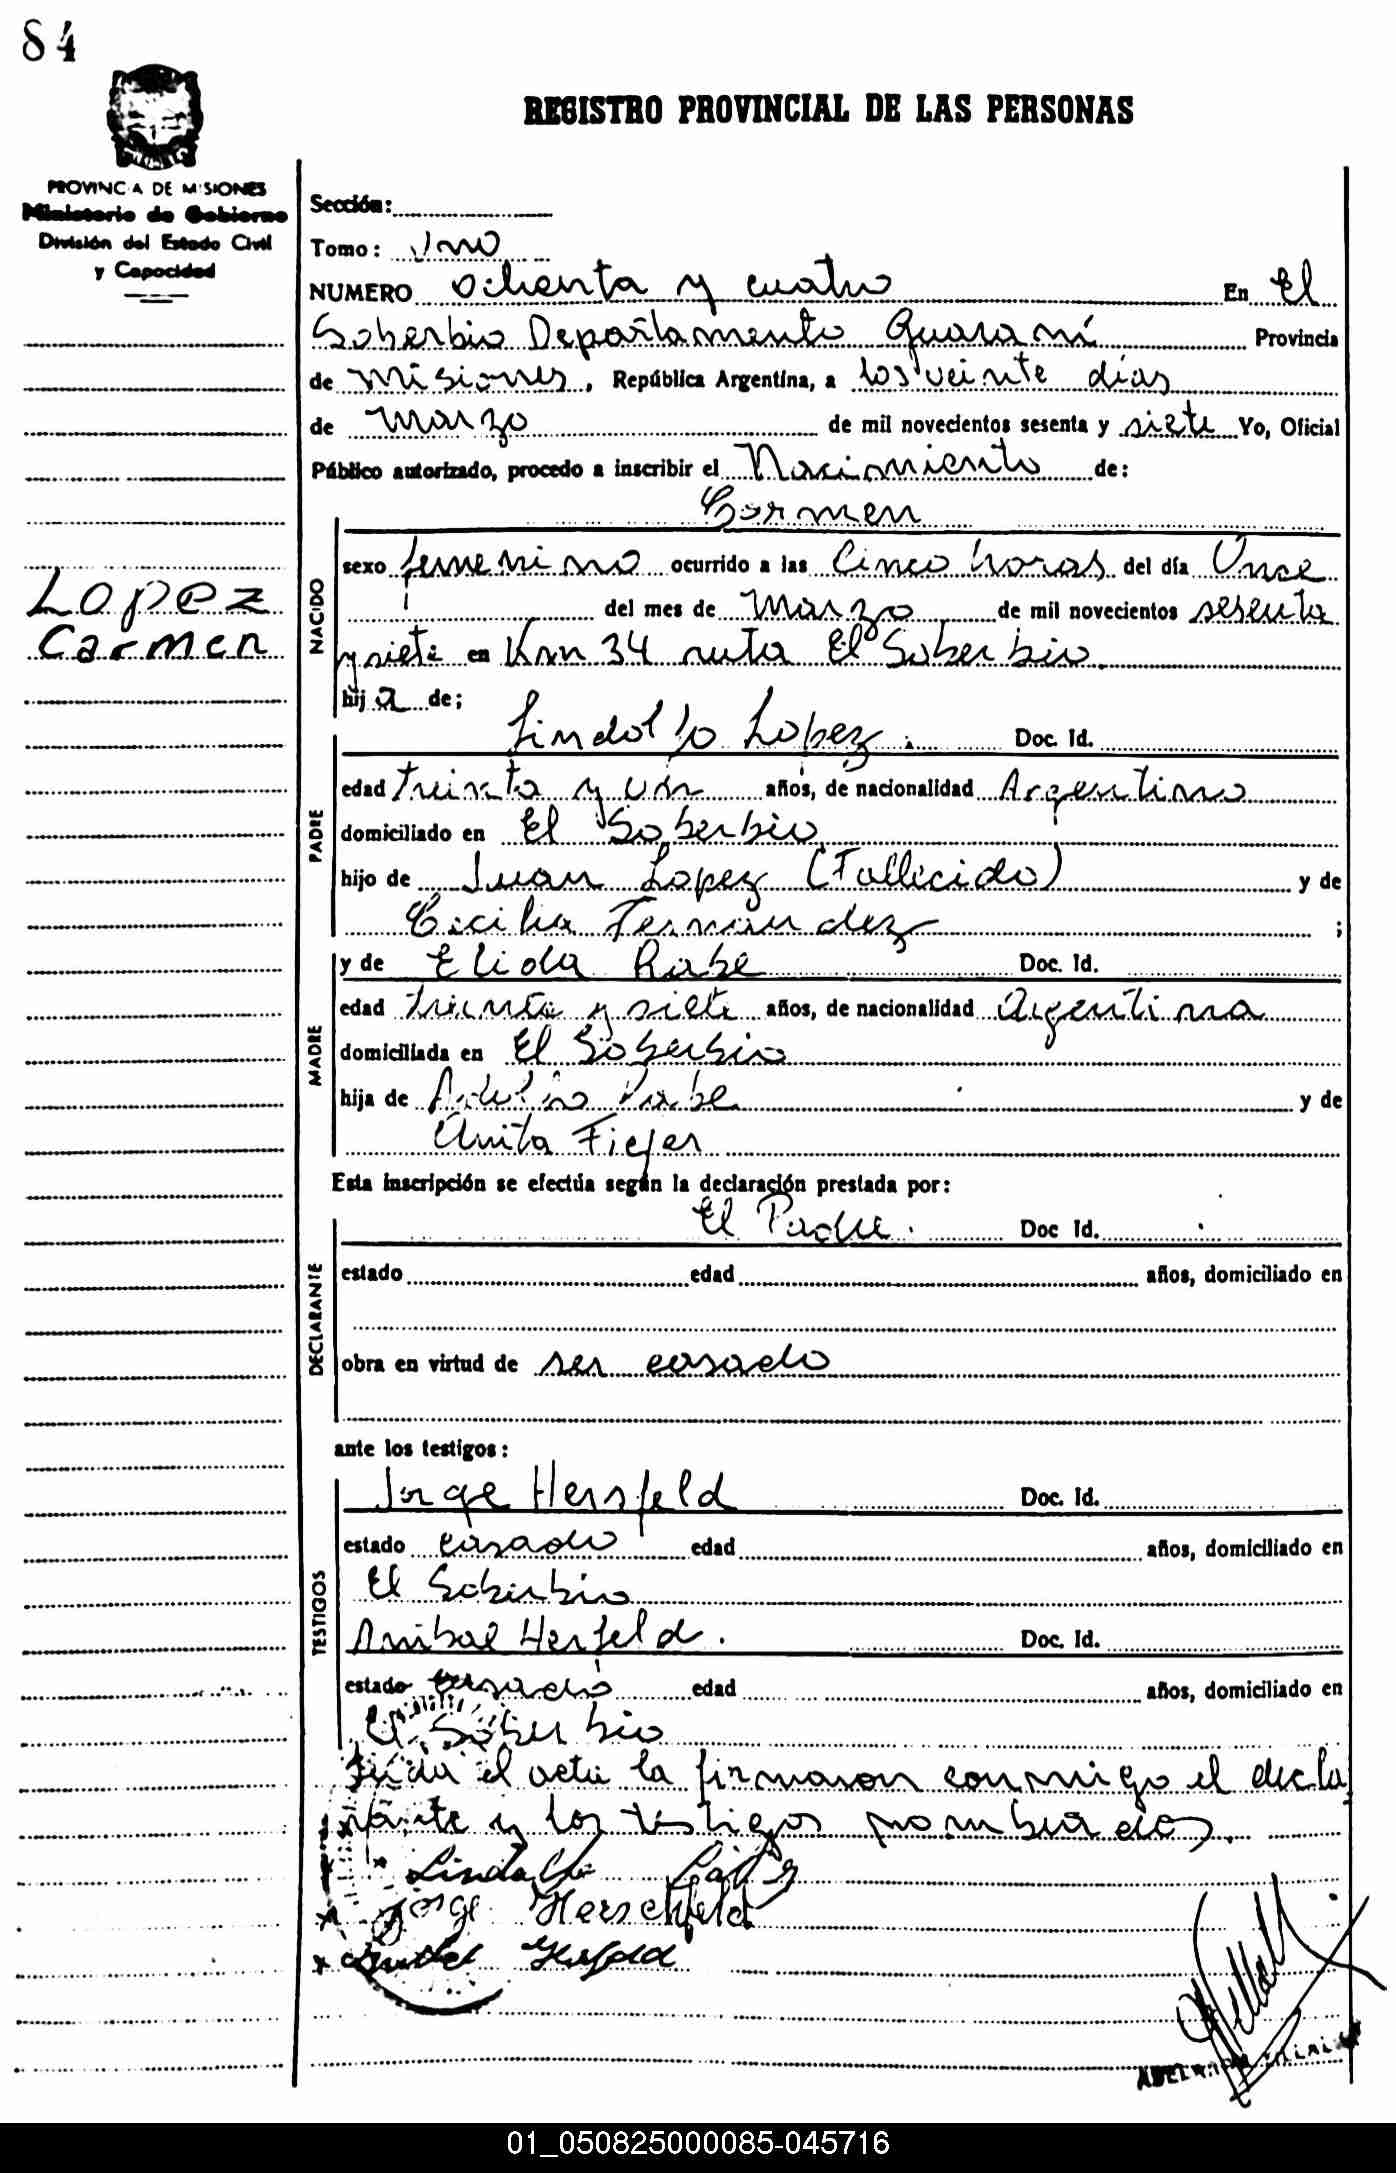 84
REGISTRO PROVINCIAL DE LAS PERSONAS
PROVINCIA DE MISIONES
Ministerio de Gobierno
División del Estado Civil
y Capacidad
Sección:
Tomo: Uno
NUMERO Ochenta y cuatro En El
Soberbio Departamento Guaraní Provincia
de Misiones, República Argentina, a los veinte días
de Marzo de mil novecientos sesenta y siete Yo, Oficial
Público autorizado, procedo a inscribir el Nacimiento de:
Lopez
Carmen
NACIDO
Carmen
sexo femenino ocurrido a las Cinco horas del día Once
del mes de Marzo de mil novecientos sesenta
y siete en Km 34 ruta El Soberbio
hija de;
PADRE
Lindolfo Lopez. Doc. Id.
edad treinta y un años, de nacionalidad Argentino
domiciliado en El Soberbio
hijo de Juan Lopez (Fallecido) y de
Cecilia Fernandez ;
MADRE
y de Elida Rabe Doc. Id.
edad treinta y siete años, de nacionalidad Argentina
domiciliada en El Soberbio
hija de Adolfo Rabe y de
Anita Fiejer
Esta inscripción se efectúa según la declaración prestada por:
DECLARANTE
El Padre. Doc Id.
estado edad años, domiciliado en
obra en virtud de ser casado
ante los testigos:
TESTIGOS
Jorge Hersfeld Doc. Id.
estado casado edad años, domiciliado en
El Soberbio
Anibal Herfeld. Doc. Id.
estado casado edad años, domiciliado en
El Soberbio
leida el acta la firmaron conmigo el decla
rante y los testigos nombrados.
Lindolfo Lopez
Jorge Herschfeld
01_050825000085-045716